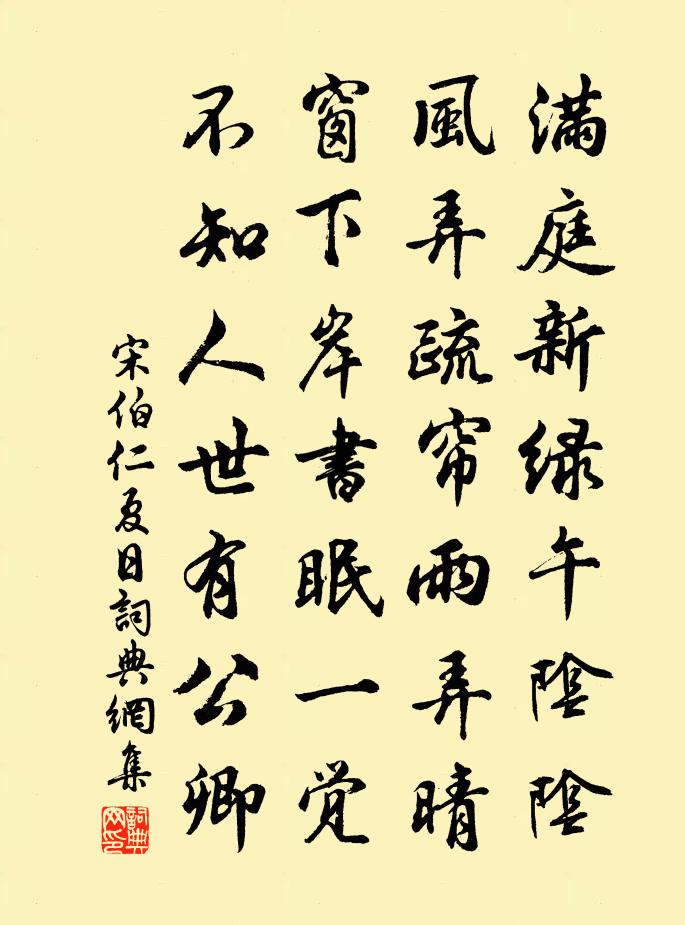 滿庭新緑午陰陰
風弄疏帘雨弄晴
窗下岸書眠一觉
不知人世有公卿
宋伯仁夏日詞典網集
詞典网印